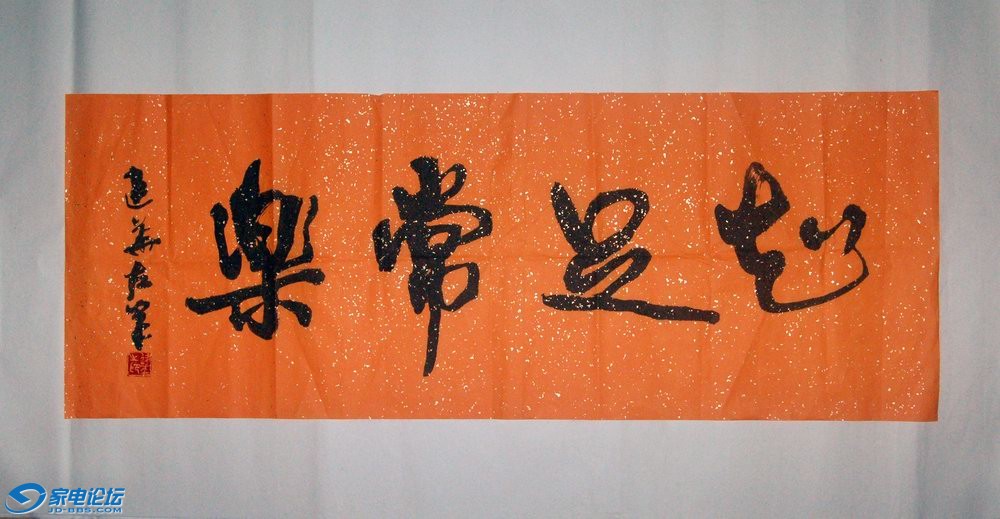 知足常樂
建華左筆
家电论坛
JD-BBS.COM